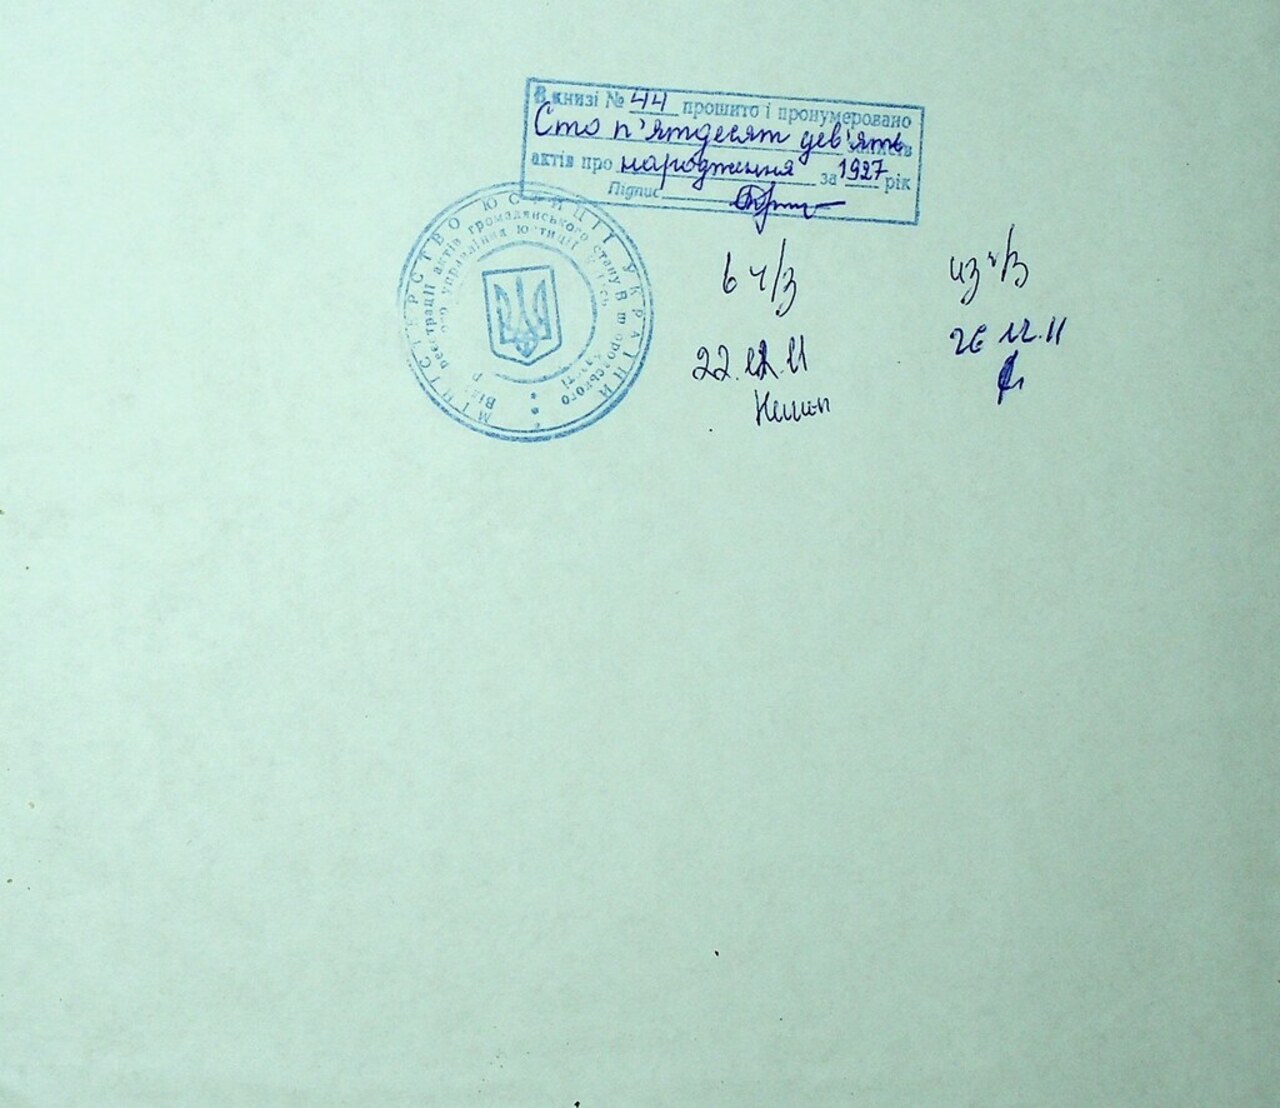 В книзі № 44 прошито і пронумеровано
Сто п'ятдесят дев'ять записів
актів про народження за 1927 рік
Підпис
МІНІСТЕРСТВО ЮСТИЦІЇ УКРАЇНИ
реєстрації актів громадянського стану
управління юстиції
в ч/з
из ч/з
22.12.11
26.12.11